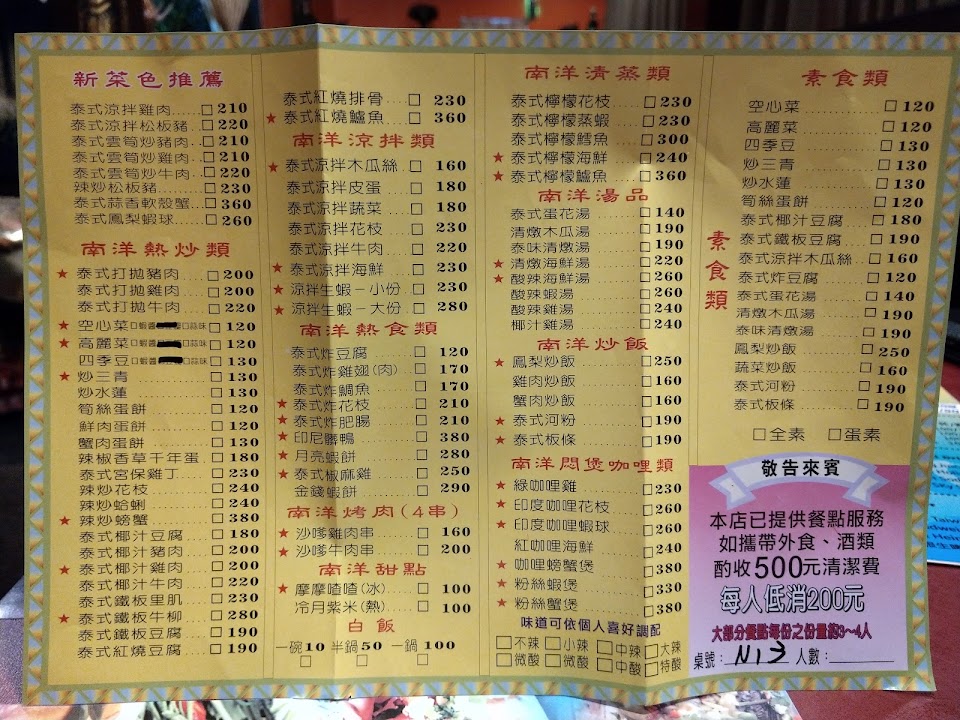 新菜色推薦
泰式涼拌雞肉....□ 210
泰式涼拌松板豬..□ 220
泰式雲筍炒豬肉..□ 210
泰式雲筍炒雞肉..□ 210
泰式雲筍炒牛肉..□ 220
辣炒松板豬......□ 230
泰式蒜香軟殼蟹..□ 360
泰式鳳梨蝦球....□ 260
南洋熱炒類
★ 泰式打拋豬肉....□ 200
泰式打拋雞肉....□ 200
泰式打拋牛肉....□ 220
★ 空心菜□蝦醬□蒜味 □ 120
★ 高麗菜□蝦醬□蒜味 □ 120
四季豆□蝦醬□蒜味 □ 130
★ 炒三青..........□ 130
炒水蓮..........□ 130
筍絲蛋餅........□ 120
鮮肉蛋餅........□ 120
蟹肉蛋餅........□ 130
辣椒香草千年蛋..□ 180
泰式宮保雞丁....□ 230
辣炒花枝........□ 240
辣炒蛤蜊........□ 240
★ 辣炒螃蟹........□ 380
泰式椰汁豆腐....□ 180
泰式椰汁豬肉....□ 200
★ 泰式椰汁雞肉....□ 200
泰式椰汁牛肉....□ 220
泰式鐵板里肌....□ 230
★ 泰式鐵板牛柳....□ 280
泰式鐵板豆腐....□ 190
泰式紅燒豆腐....□ 190
泰式紅燒排骨....□ 230
★ 泰式紅燒鱸魚....□ 360
南洋涼拌類
★ 泰式涼拌木瓜絲..□ 160
泰式涼拌皮蛋....□ 180
泰式涼拌蔬菜....□ 180
泰式涼拌花枝....□ 230
泰式涼拌牛肉....□ 220
★ 泰式涼拌海鮮....□ 230
★ 涼拌生蝦－小份..□ 230
★ 涼拌生蝦－大份..□ 280
南洋熱食類
泰式炸豆腐......□ 120
泰式炸雞翅(肉)..□ 170
泰式炸鯛魚......□ 170
★ 泰式炸花枝......□ 210
★ 泰式炸肥腸......□ 210
★ 印尼髒鴨........□ 380
★ 月亮蝦餅........□ 280
★ 泰式椒麻雞......□ 250
金錢蝦餅........□ 290
南洋烤肉(4串)
★ 沙嗲雞肉串......□ 160
★ 沙嗲牛肉串......□ 200
南洋甜點
★ 摩摩喳喳(冰)....□ 100
冷月紫米(熱)....□ 100
白飯
一碗10 半鍋50 一鍋100
南洋清蒸類
泰式檸檬花枝....□ 230
泰式檸檬蒸蝦....□ 230
泰式檸檬鱈魚....□ 300
★ 泰式檸檬海鮮....□ 240
★ 泰式檸檬鱸魚....□ 360
南洋湯品
泰式蛋花湯......□ 140
清燉木瓜湯......□ 190
泰味清燉湯......□ 190
★ 清燉海鮮湯......□ 220
★ 酸辣海鮮湯......□ 260
酸辣蝦湯........□ 260
酸辣雞湯........□ 240
椰汁雞湯........□ 240
南洋炒飯
★ 鳳梨炒飯........□ 250
雞肉炒飯........□ 160
蟹肉炒飯........□ 160
★ 泰式河粉........□ 190
★ 泰式板條........□ 190
南洋悶煲咖哩類
★ 綠咖哩雞........□ 230
★ 印度咖哩花枝....□ 260
★ 印度咖哩蝦球....□ 260
紅咖哩海鮮......□ 240
★ 咖哩螃蟹煲......□ 380
★ 粉絲蝦煲........□ 330
★ 粉絲蟹煲........□ 380
味道可依個人喜好調配
□不辣 □小辣 □中辣 □大辣
□微酸 □微酸 □中酸 □特酸
素食類
素食類
空心菜..........□ 120
高麗菜..........□ 120
四季豆..........□ 130
炒三青..........□ 130
炒水蓮..........□ 130
筍絲蛋餅........□ 120
泰式椰汁豆腐....□ 180
泰式鐵板豆腐....□ 190
泰式涼拌木瓜絲..□ 160
泰式炸豆腐......□ 120
泰式蛋花湯......□ 140
清燉木瓜湯......□ 190
泰味清燉湯......□ 190
鳳梨炒飯........□ 250
蔬菜炒飯........□ 160
泰式河粉........□ 190
泰式板條........□ 190
□全素 □蛋素
敬告來賓
本店已提供餐點服務
如攜帶外食、酒類
酌收500元清潔費
每人低消200元
大部分餐點每份之份量約3～4人
桌號：N13 人數：